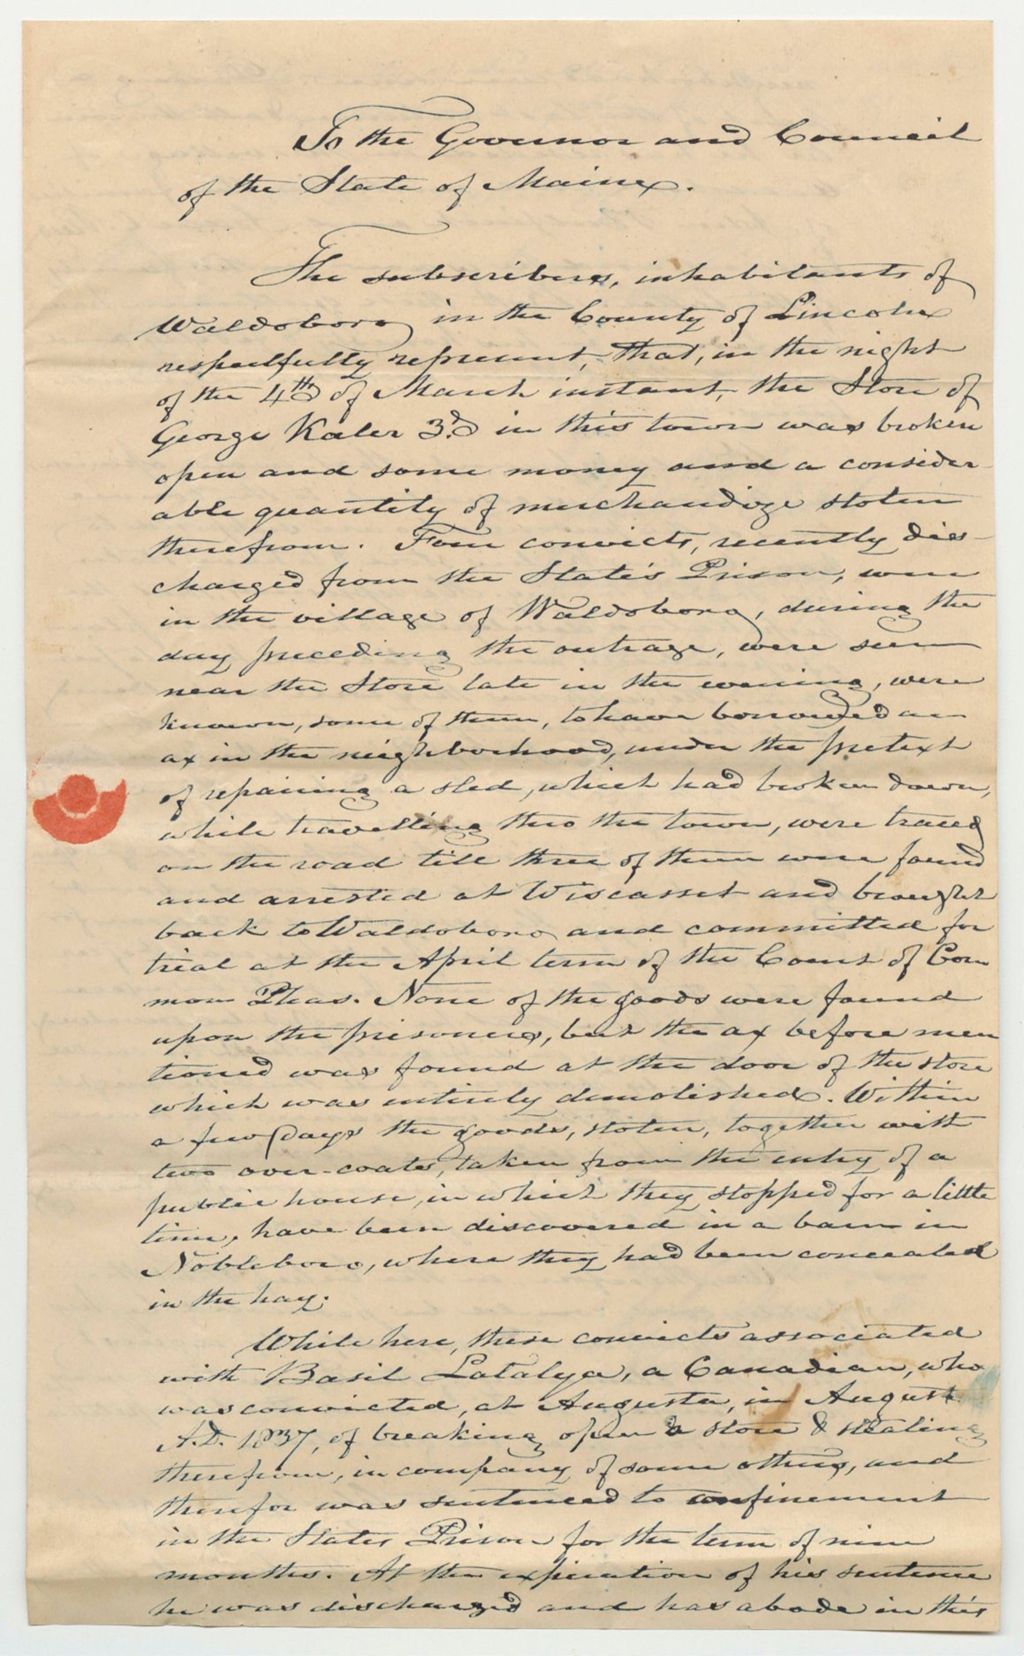 To the Governor and Council
of the State of Maine.
The subscribers, inhabitants of
Waldoboro in the County of Lincoln
respectfully represent, That, in the night
of the 4th of March instant, the Store of
George Kaler 3.d in this town was broken
open and some money and a consider-
able quantity of merchandize stolen
therefrom. Four convicts, recently dis-
charged from the State's Prison, were
in the village of Waldoboro, during the
day preceeding the outrage, were seen
near the Store late in the evening, were
known, some of them, to have borrowed an
ax in the neighborhood, under the pretext
of repairing a sled, which had broken down,
while travelling thro the town, were traced
on the road till three of them were found
and arrested at Wiscasset and brought
back to Waldoboro and committed for
trial at the April term of the Court of Com
mon Pleas. None of the goods were found
upon the prisoners, but the ax before men
tioned was found at the door of the store
which was entirely demolished. Within
a few days the goods, stolen, together with
two over-coats, taken from the entry of a
public house, in which they stopped for a little
time, have been discovered in a barn in
Nobleboro, where they had been concealed
in the hay.
While here, these convicts associated
with Basil Latalya, a Canadian, who
was convicted, at Augusta, in August
A.D. 1837, of breaking open a store & stealing
therefrom, in company of some others, and
therefor was sentenced to confinement
in the States Prison for the term of nine
months. At the expiration of his sentence
he was discharged and has abode in this